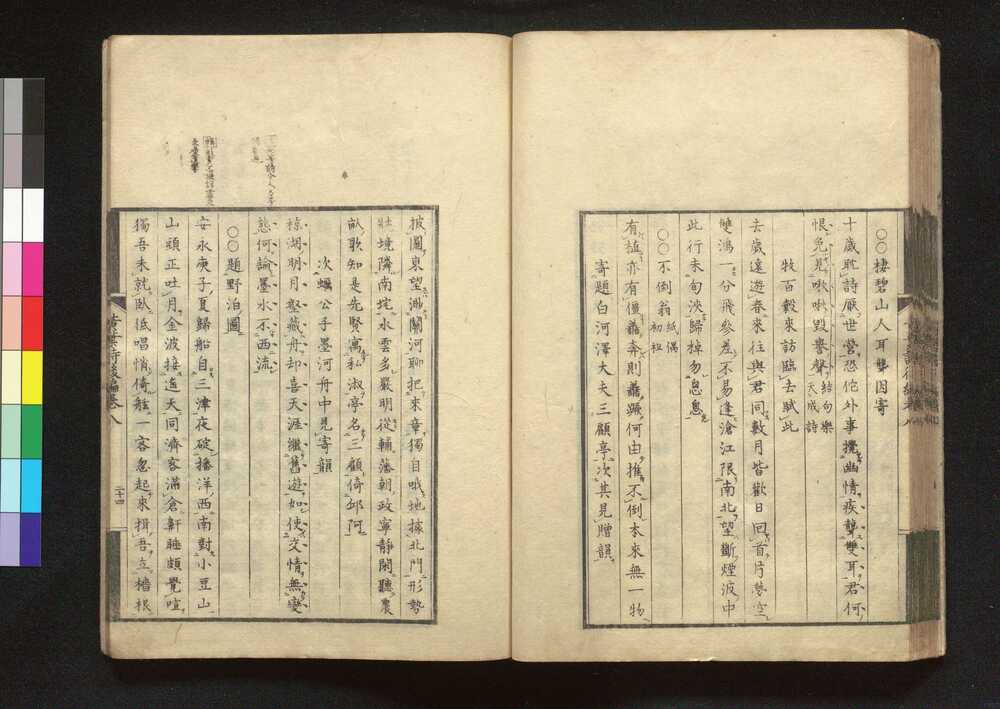 ○○棲碧山人耳聾因寄
十歲耽詩厭世營恐佗外事攪幽情疾聾雙耳君何
恨免見啾啾毀譽聲結句樂天成詩
牧百穀來訪臨去賦此
去歲遠遊春來往與君同數月皆歡日回首片勢空
雙鴻一分飛參差不易逢滄江限南北望斷煙波中
此行未旬浹歸棹勿怱怱
○○不倒翁紙偶初祖
有植亦有僵纛奔則纛蹶何由推不倒本來無一物
寄題白河澤大夫三顧亭次其見贈韻
披圖東望渺關河聊把來章獨自哦地據北門形勢
壯境隣南垞水雲多嚴明從輔藩朝政寧靜閑聽農
畝歌知是先賢寓私淑亭名三顧倚邱阿
次蠣公子墨河舟中見寄韻
椋湖明月壑藏舟却喜天涯繼舊遊如使交情無變
態何論墨水不西流
○○題野泊圖
安永庚子夏歸船自三津夜碇播洋西南對小豆山
山頭正吐月金波接遙天同濟客滿倉鼾睡頗覺喧
獨吾未就臥低唱悄倚舷一客忽起來揖吾立檣根
二十四